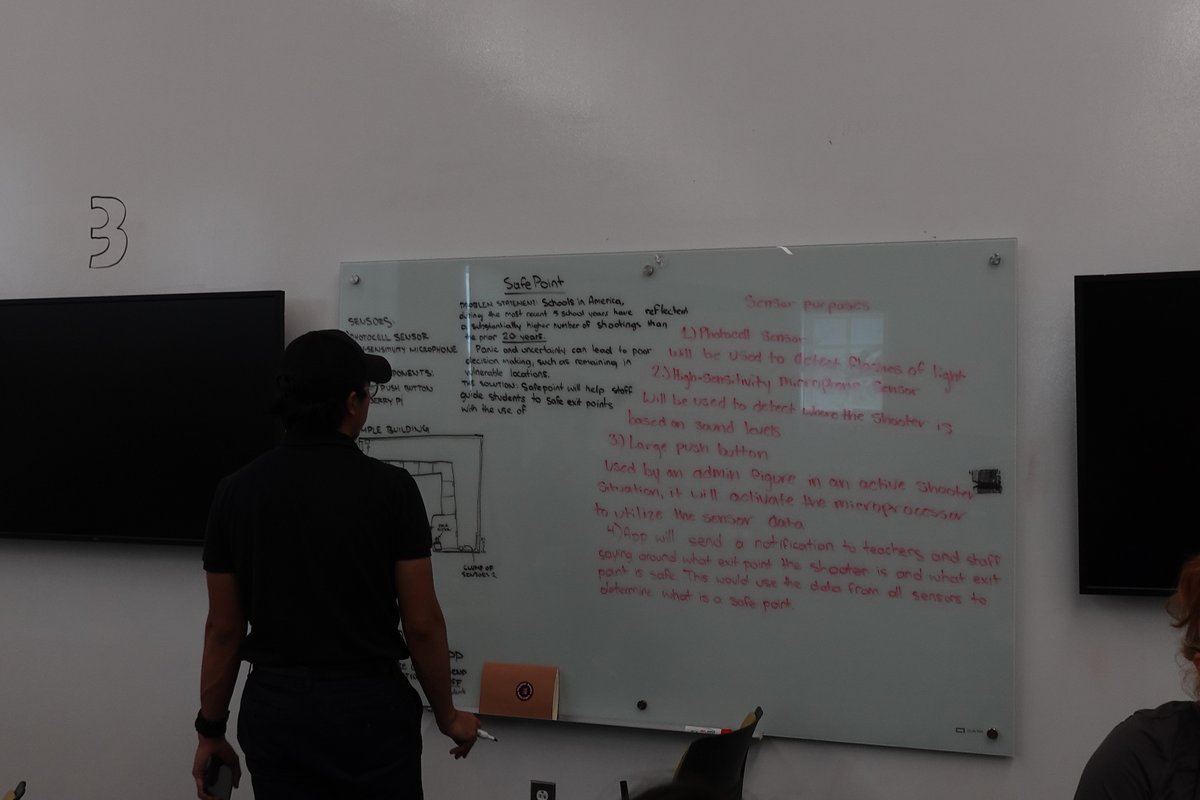 3
Safe Point
SENSORS:
PHOTOCELL SENSOR
-SENSITIVITY MICROPHONE
PONENTS:
PUSH BUTTON
BERRY PI
PROBLEM STATEMENT: Schools in America,
during the most recent 5 school years have reflected
a substantially higher number of shootings than
the prior 20 years.
Panic and uncertainty can lead to poor
decision making, such as remaining in
vulnerable locations.
THE SOLUTION: Safepoint will help staff
guide students to safe exit points
with the use of
MPLE BUILDING
CLUMP OF
SENSORS 2
Sensor purposes
1.) Photocell Sensor
Will be used to detect flashes of light
2.) High-sensitivity microphone Sensor
Will be used to detect where the shooter is
based on sound levels
3) Large push button
Used by an admin figure in an active shooter
Situation, it will activate the microprocessor
to utilize the sensor data
4) App will send a notification to teachers and staff
saying around what exit point the shooter is and what exit
point is safe. This would use the data from all sensors to
determine what is a safe point.